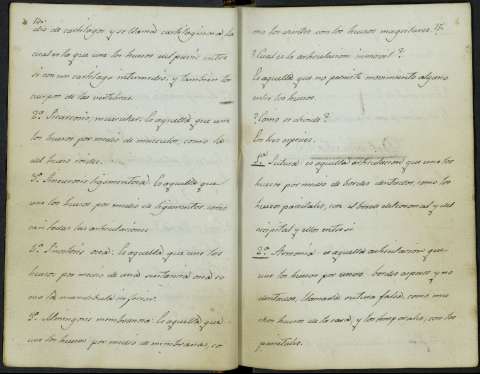 dio de cartilagos y se llama cartilaginosa la
cual es la que une los huesos del pubis entre
si con un cartilago intermedio, y tambien los
cuerpos de las vertebras.
2ª. muscular: es aquella que une
los huesos por medio de musculos, como la
del hueso ioides.
3ª. ligamentosa: es aquella que
une los huesos por medio de ligamentos, como
casi todas las articulaciones.
4ª. osea: es aquella que une los
huesos por medio de una sustancia osea co
mo la mandibula inferior.
5ª. membranosa: es aquella que
une los huesos por medio de membranas, co
mo los dientes con los huesos maxilares.
¿Cual es la articulacion inmovil?
Es aquella que no permite movimiento alguno
entre los huesos.
¿Como se divide?
En tres especies.
1ª. Sutura: es aquella articulacion que une los
huesos por medio de bordes dentados, como los
huesos parietales, con el borde del coronal y del
occipital y ellos entre si.
2ª. Armonia: es aquella articulacion que
une los huesos por bordes asperos y no
dentados, llamada sutura falsa, como mu
chos huesos de la cara, y los temporales, con los
parietales.